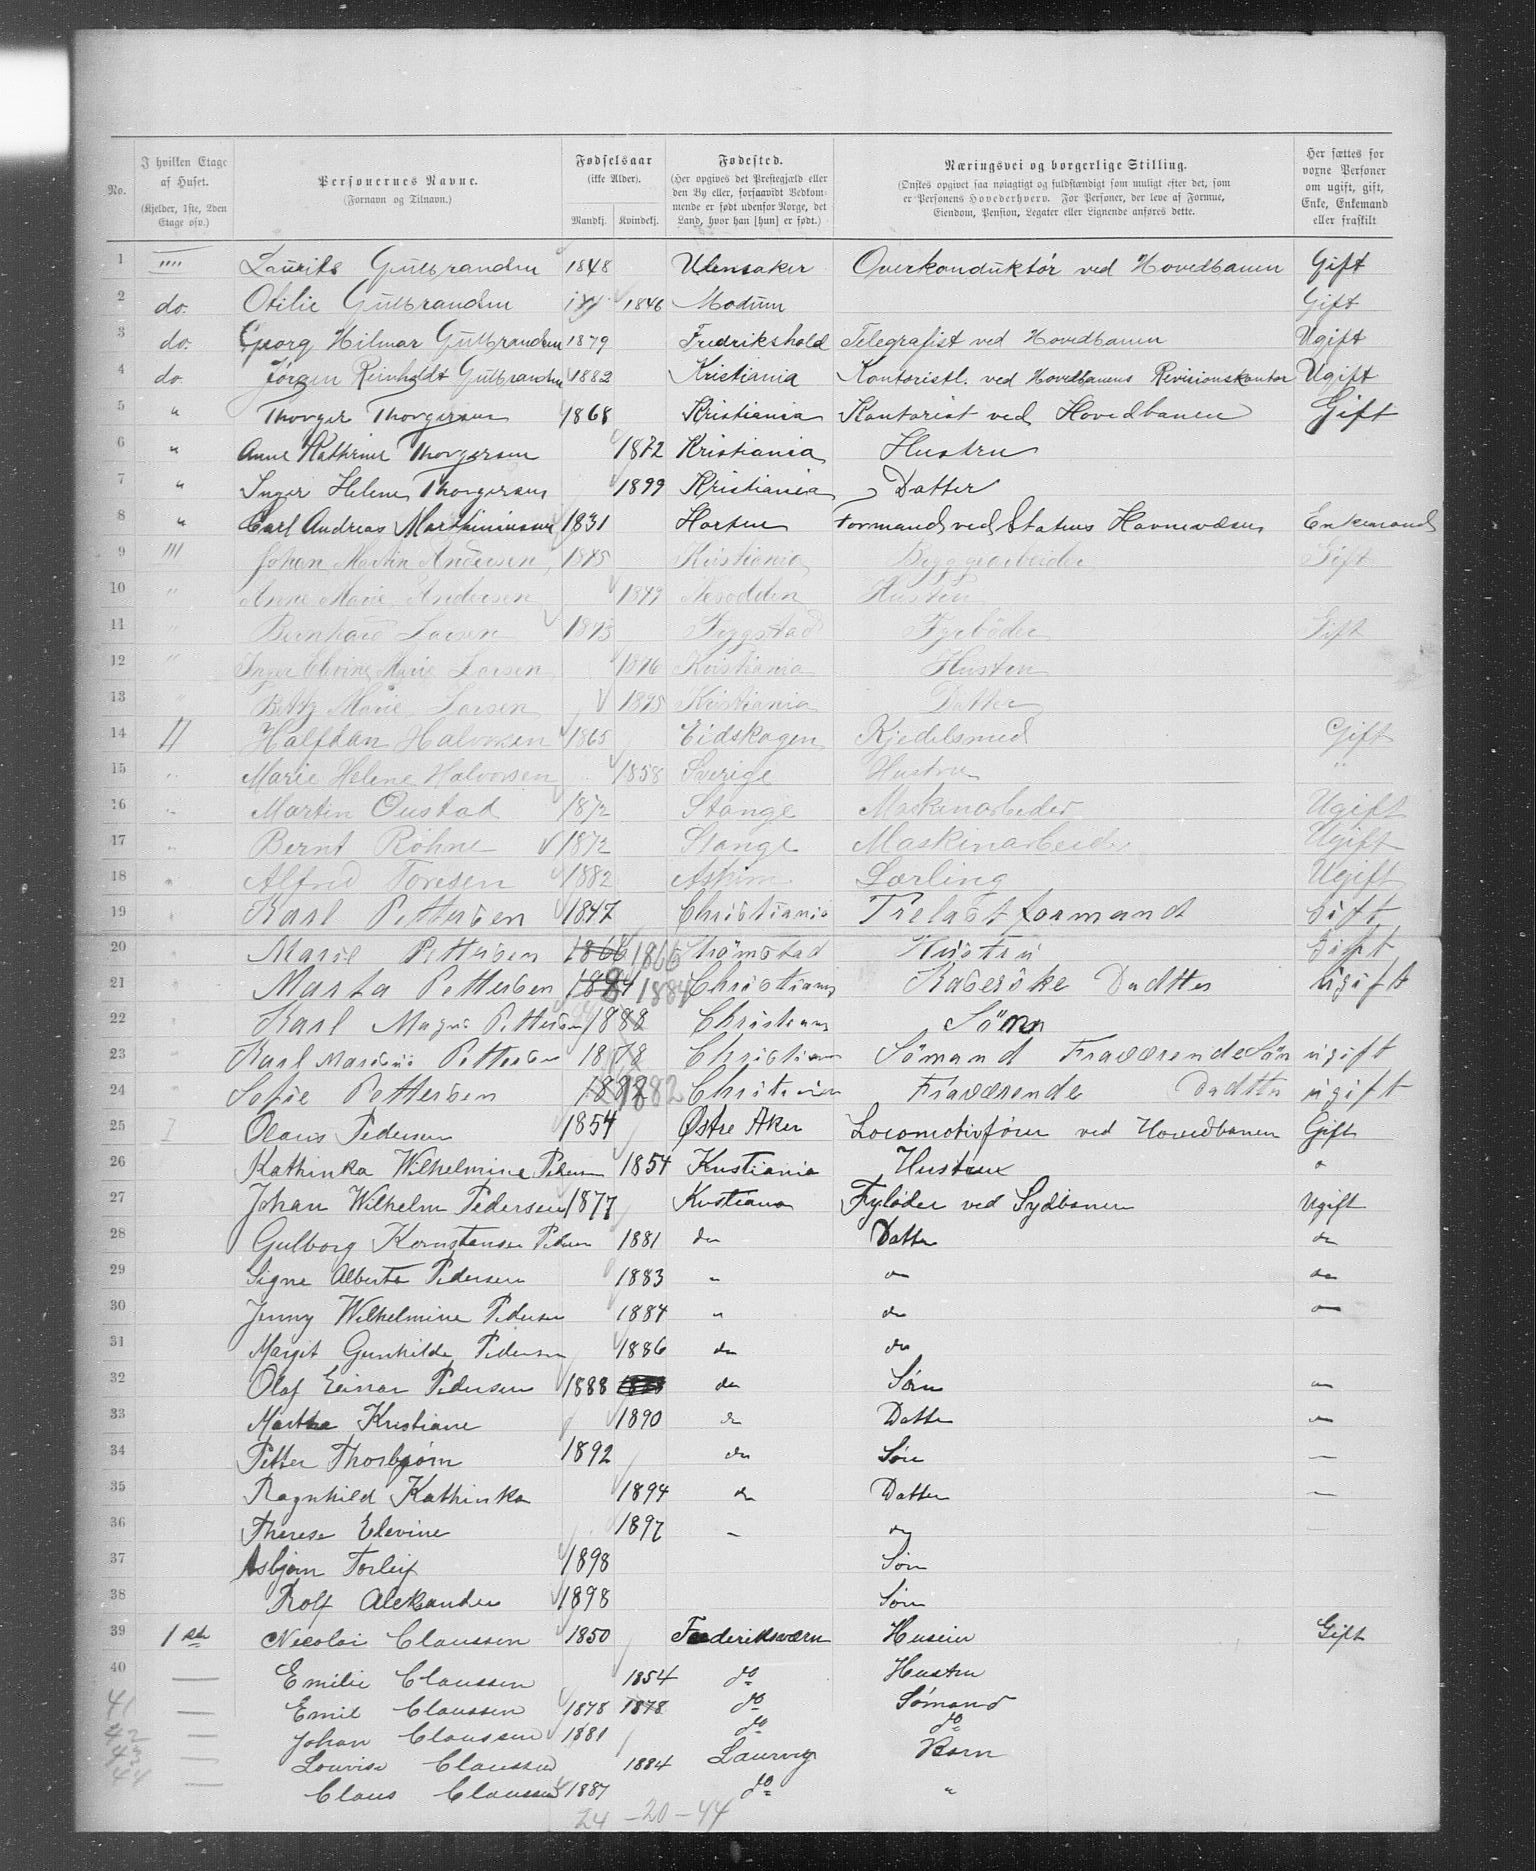 No. | I hvilken Etage af Huset. (Kjelder, 1ste, 2den Etage osv.) | Personernes Navne. (Fornavn og Tilnavn.) | Fødselsaar (ikke Alder). Mandkj. | Kvindekj. | Fødested. (Her opgives det Prestegjæld eller den By eller, forsaavidt Vedkommende er født udenfor Norge, det Land, hvor han [hun] er født.) | Næringsvei og borgerlige Stilling. (Ønskes opgivet saa nøiagtigt og fuldstændigt som muligt efter det, som er Personens Hovederhverv. For Personer, der leve af Formue, Eiendom, Pension, Legater eller Lignende anføres dette. | Her sættes for voxne Personer om ugift, gift, Enke, Enkemand eller fraskilt
1 """ Laurits Gulbrandsen 1848 Ulensaker Overkonduktør ved Hovedbanen Gift
2 do. Otilie Gulbrandsen 1846 Modum Gift
3 do. Georg Hilmar Gulbrandsen 1879 Fredrikshald Telegrafist ved Hovedbanen Ugift
4 do Jørgen Reinholdt Gulbrandsen 1882 Kristiania Kontorist. ved Hovedbanens Revisionskontor Ugift
5 " Thorger Thorgersen 1868 Kristiania Kontorist ved Hovedbanen Gift
6 " Anne Kathrine Thorgersen 1872 Kristiania Hustru
7 " Inger Helene Thorgersen 1899 Kristiania Datter
8 " Carl Andreas Marthiniussen 1831 Horten Formand ved Statens Havnevæsen Enkemand
9 III Johan Martin Andersen 1845 Kristiania Byggearbeider Gift
10 " Anne Marie Andersen 1849 Nesodden Hustru
11 " Bernhard Larsen 1873 Trygstad Fyrbøder Gift
12 " Inger Elvine Marie Larsen 1876 Kristiania Hustru
13 " Betzy Marie Larsen 1895 Kristiania Datter
14 II Halfdan Halvorsen 1865 Eidskogen Kjedelsmed Gift
15 " Marie Helene Halvorsen 1858 Sverige Hustru "
16 " Martin Oustad 1872 Stange Maskinarbeider Ugift
17 " Bernt Røhne 1872 Stange Maskinarbeider Ugift
18 " Alfred Toresen 1882 Askim Lærling Ugift
19 " Karl Pettersen 1847 Christiania Trelastformand Gift
20 " Marie Pettersen 1866 1866 Strømstad Hustru Gift
21 " Marta Pettersen 1884 1884 Christiania Dadtter ugift
22 " Karl Magnus Pettersen 1888 Christiania Sønn
23 " Karl Marenus Pettersen 1878 Christian Sømand Fraværende Søn ugift
24 " Sofie Pettersen 1882 1882 Christiania Fraværende Dadtter ugift
25 I Olaus Pedersen 1854 Østre Aker Locomotivfører ved Hovedbanen Gift
26 Kathinka Wilhelmine Pedersen 1854 Kristiania Hustrue "
27 Johan Wilhelm Pedersen 1877 Kristiana Fyrbøder ved Sydbanen Ugift
28 Gulborg Kornstanse Pedersen 1881 do Datter do
29 Signe Alberta Pedersen 1883 " do do
30 Jenny Wilhelmine Pedersen 1884 " do do
31 Margit Gunhilde Pedersen 1886 do do
32 Olaf Einar Pedersen 1888 do Søn do
33 Martha Kristiane 1890 do Datter do
34 Petter Thorbjørn 1892 do Søn —
35 Ragnhild Kathinka 1894 do Datter —
36 Therese Elevine 1897 — do
37 Asbjørn Torleif 1898 Søn
38 Rolf Aleksander 1898 Søn
39 1ste Nicolai Claussen 1850 Frederiksværn Huseier Gift
40 — Emilie Claussen 1854 do Hustru
41 — Emil Claussen 1878 1878 do Sømand
42 — Johan Claussen 1881 do do
43 — Louvise Claussen 1884 Laurvig Barn
44 — Claus Claussen 1887 do "
24 - 20 - 44